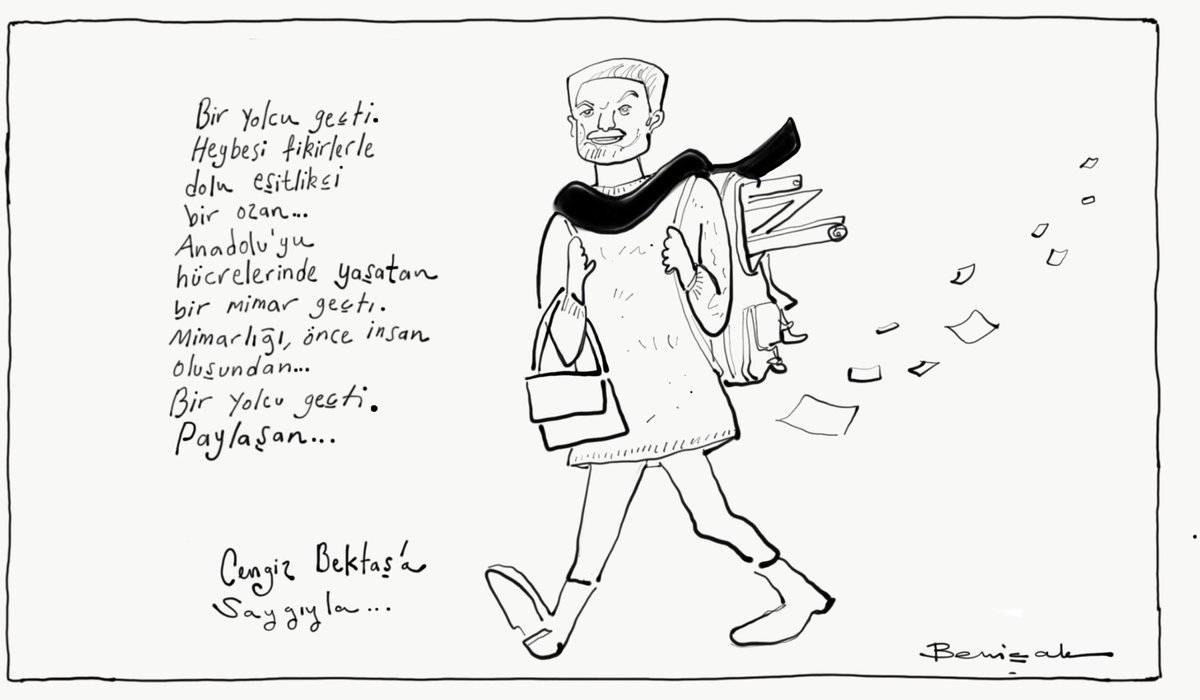 Bir yolcu geçti.
Heybesi fikirlerle
dolu eşitlikçi
bir ozan...
Anadolu'yu
hücrelerinde yaşatan
bir mimar geçti.
Mimarlığı, önce insan
oluşundan...
Bir yolcu geçti.
Paylaşan...
Cengiz Bektaş'a
Saygıyla...
Behiçak